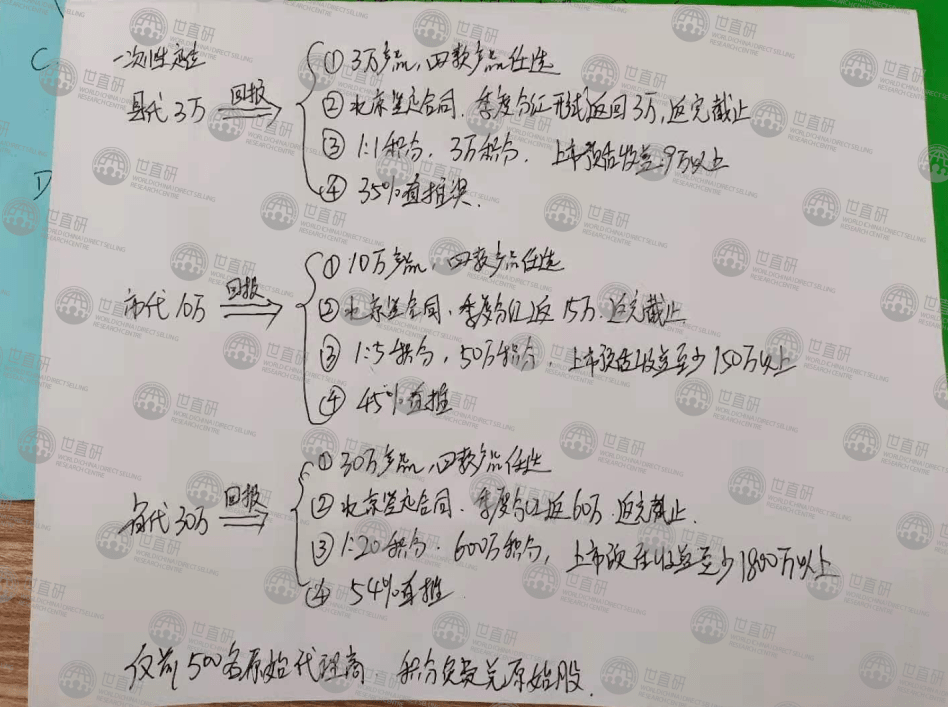 C 一次性定位
D
县代3万 回报
① 3万产品，四款产品任选
② 北京签定合同，季度分红形式返回3万，返完截止
③ 1:1积分，3万积分，上市预估收益：9万以上
④ 35%直推奖．
市代10万 回报
① 10万产品，四款产品任选
② 北京签合同，季度分红返15万．返完截止
③ 1:5积分，50万积分，上市预估收益至少150万以上
④ 45%直推
省代30万 回报
① 30万产品，四款产品任选
② 北京签定合同、季度分红返60万．返完截止．
③ 1:20积分．600万积分，上市预估收益至少1800万以上
④ 54%直推
仅前500名原始代理商 积分免费兑原始股．
世直研
WORLD CHINA DIRECT SELLING
RESEARCH CENTRE